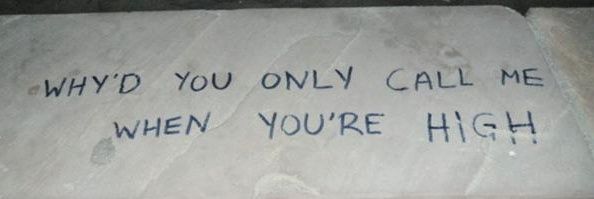 WHY'D YOU ONLY CALL ME
WHEN YOU'RE HIGH